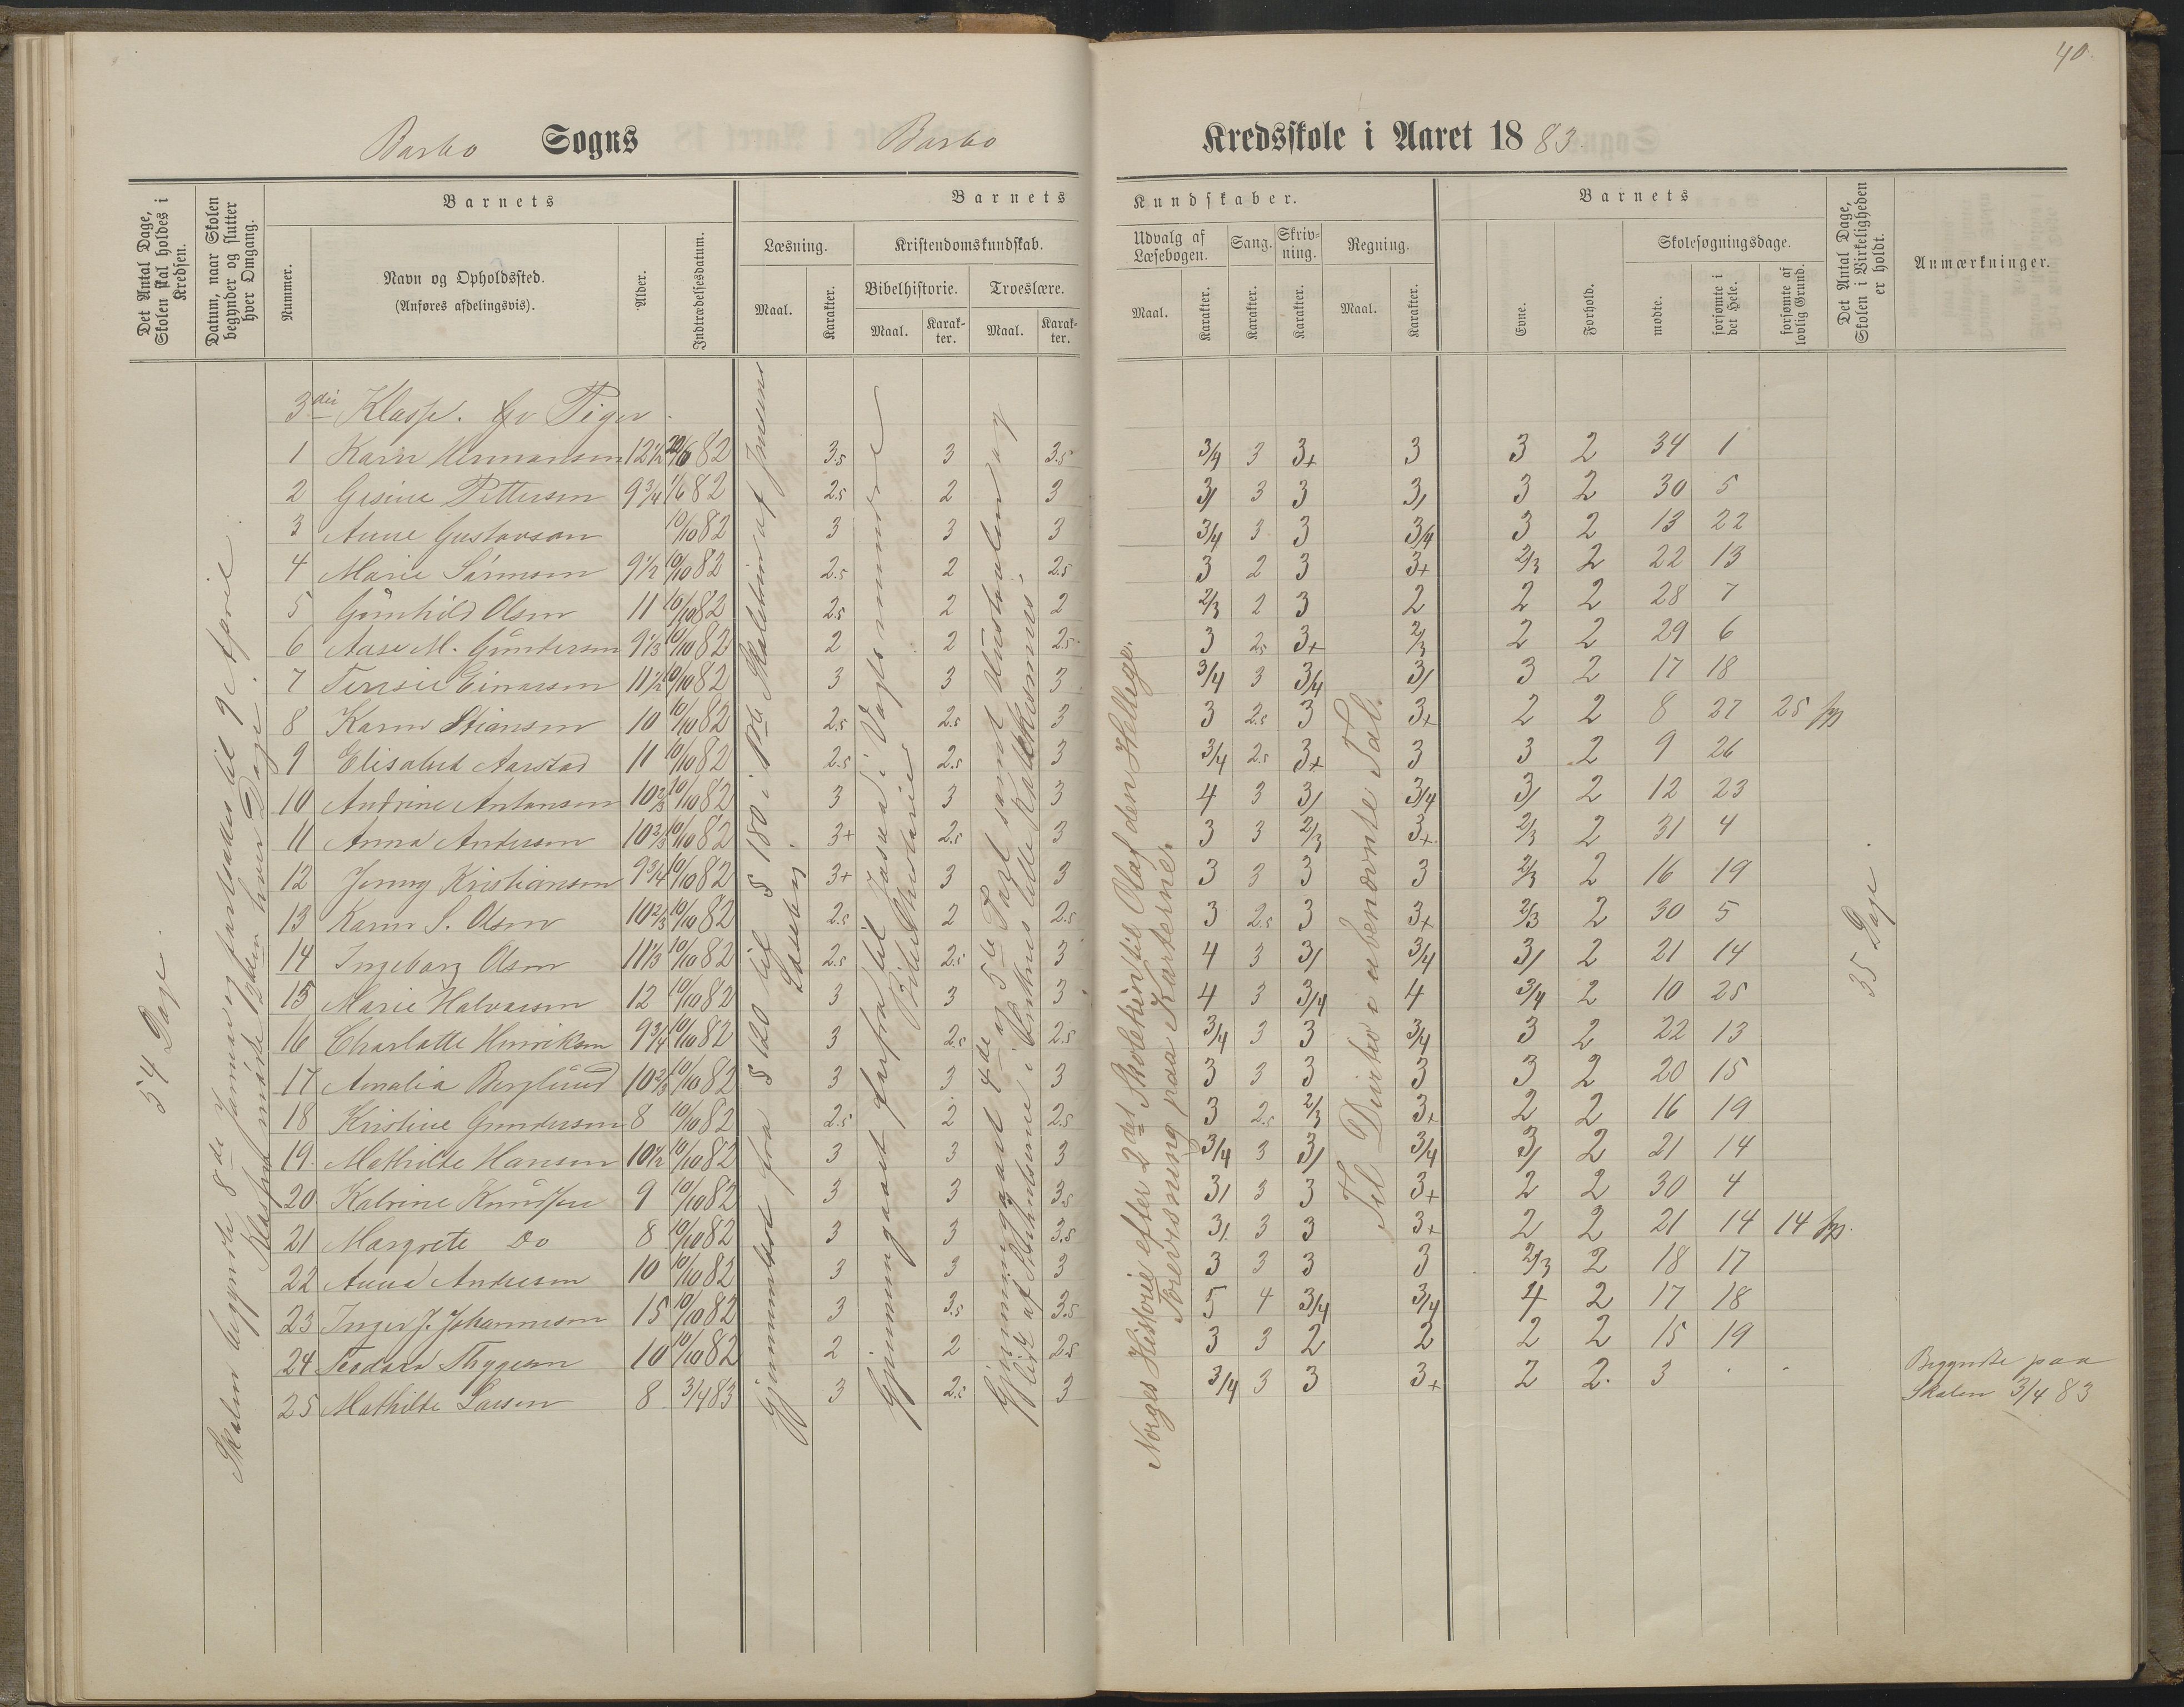 40.
Barbo Sogns Barbo Kredsskole i Aaret 1883.
Det Antal Dage, Skolen skal holdes i Kredsen.
Datum, naar Skolen begynder og slutter hver Omgang.
Barnets
Nummer.
Navn og Opholdssted.
(Anføres afdelingsvis).
Alder.
Indtrædelsesdatum.
Barnets Kundskaber.
Læsning.
Maal.
Karakter.
Kristendomskundskab.
Bibelhistorie.
Maal.
Karakter.
Troeslære.
Maal.
Karakter.
Udvalg af Læsebogen.
Maal.
Karakter.
Sang.
Karakter.
Skrivning.
Karakter.
Regning.
Maal.
Karakter.
Barnets
Evne.
Forhold.
Skolesøgningsdage.
mødte.
forsømte i det Hele.
forsømte af lovlig Grund.
Det Antal Dage, Skolen i Virkeligheden er holdt.
Anmærkninger.
54 Dage.
Skolen begyndte 8de Januar og fortsattes til 9de April.
Klassen mødte hver Dage.
Gjennemlæst fra § 120 til § 180 i P. Jensens
Læsebog.
Gjennemgaaet forfra til Josea i Vogts mindre
Bibelhistorie
Gjennemgaaet 4de og 5te Part samt Hustavlen og
af Luthers lille Katekismus.
Norges Historie efter 2det Skoletrin til Olaf den Hellige.
Forevisning paa Karterne.
Til Division i ubenævnte Tal.
35 Dage.
3die Klasse. Piger
1 Karin Hermansen 12½ 20/6 82 3.5 3 3.5 3/4 3 3+ 3 3 2 34 1
2 Gesine Pettersen 9¾ 1/6 82 2.5 2 3 3/ 3 3 3/ 3 2 30 5
3 Anne Gustavson 10/10 82 3 3 3 3/4 3 3 3/4 3 2 13 22
4 Marie Sørensen 9½ 10/10 82 2.5 2 2.5 3 2 3 3+ 2/3 2 22 13
5 Gunhild Olsen 11 10/10 82 2.5 2 2 2/3 2 3 2 2 2 28 7
6 Aase M. Gundersen 9⅓ 10/10 82 2 2 2.5 3 2.5 3+ 2/3 2 2 29 6
7 Teresie Einarsen 11½ 10/10 82 3 3 3 3/4 3 3/4 3/ 3 2 17 18
8 Karen Stiansen 10 10/10 82 2.5 2.5 3 3 2.5 3 3+ 2 2 8 27 25
9 Elisabet Aarstad 11 10/10 82 2.5 2.5 3 3/4 2.5 3+ 3 3 2 9 26
10 Andrine Antonsen 10⅔ 10/10 82 3 3 3 4 3 3/ 3/4 3/ 2 12 23
11 Anna Andersen 10⅔ 10/10 82 3+ 2.5 3 3 3 2/3 3+ 2/3 2 31 4
12 Jenny Kristiansen 9¾ 10/10 82 3+ 3 3 3 3 3 3 2/3 2 16 19
13 Karen S. Olsen 10⅔ 10/10 82 2.5 2 2.5 3 2.5 3 3+ 2/3 2 30 5
14 Ingeborg Olsen 11⅓ 10/10 82 2.5 2.5 3 4 3 3/ 3/4 3/ 2 21 14
15 Marie Halvorsen 12 10/10 82 3 3 3 4 3 3/4 4 3/4 2 10 25
16 Charlotte Henriksen 9¾ 10/10 82 3 2.5 2.5 3/4 3 3 3/4 3 2 22 13
17 Amalia Berglund 10⅔ 10/10 82 3 3 3 3 3 3 3 3 2 20 15
18 Kristine Gundersen 8 10/10 82 2.5 2 2.5 3 2.5 2/3 3+ 2 2 16 19
19. Mathilde Hansen 10½ 10/10 82 3 3 3 3/4 3 3/ 3/4 3/ 2 21 14
20 Katrine Knudsen 9 10/10 82 3 3 3.5 3/ 3 3 3+ 2 2 30 4
21 Margrete Do 8 10/10 82 3 3 3.5 3/. 3 3 3+ 2 2 21 14 14
22 Anna Andersen 10 10/10 82 3 3 3 3 3 3 3 2/3 2 18 17
23 Inger J. Johannesen 15 10/10 82 3 3.5 3.5 5 4 3/4 3/4 4 2 17 18
24 Teodora Thygesen 10 10/10 82 2 2 2.5 3 3 2 2 2 2 15 19
25 Mathilde Larsen 8 3/4 83 3 2.5 3 3/4 3 3 3+ 2 2. 3 . .
Begyndte paa
Skolen 3/4 83